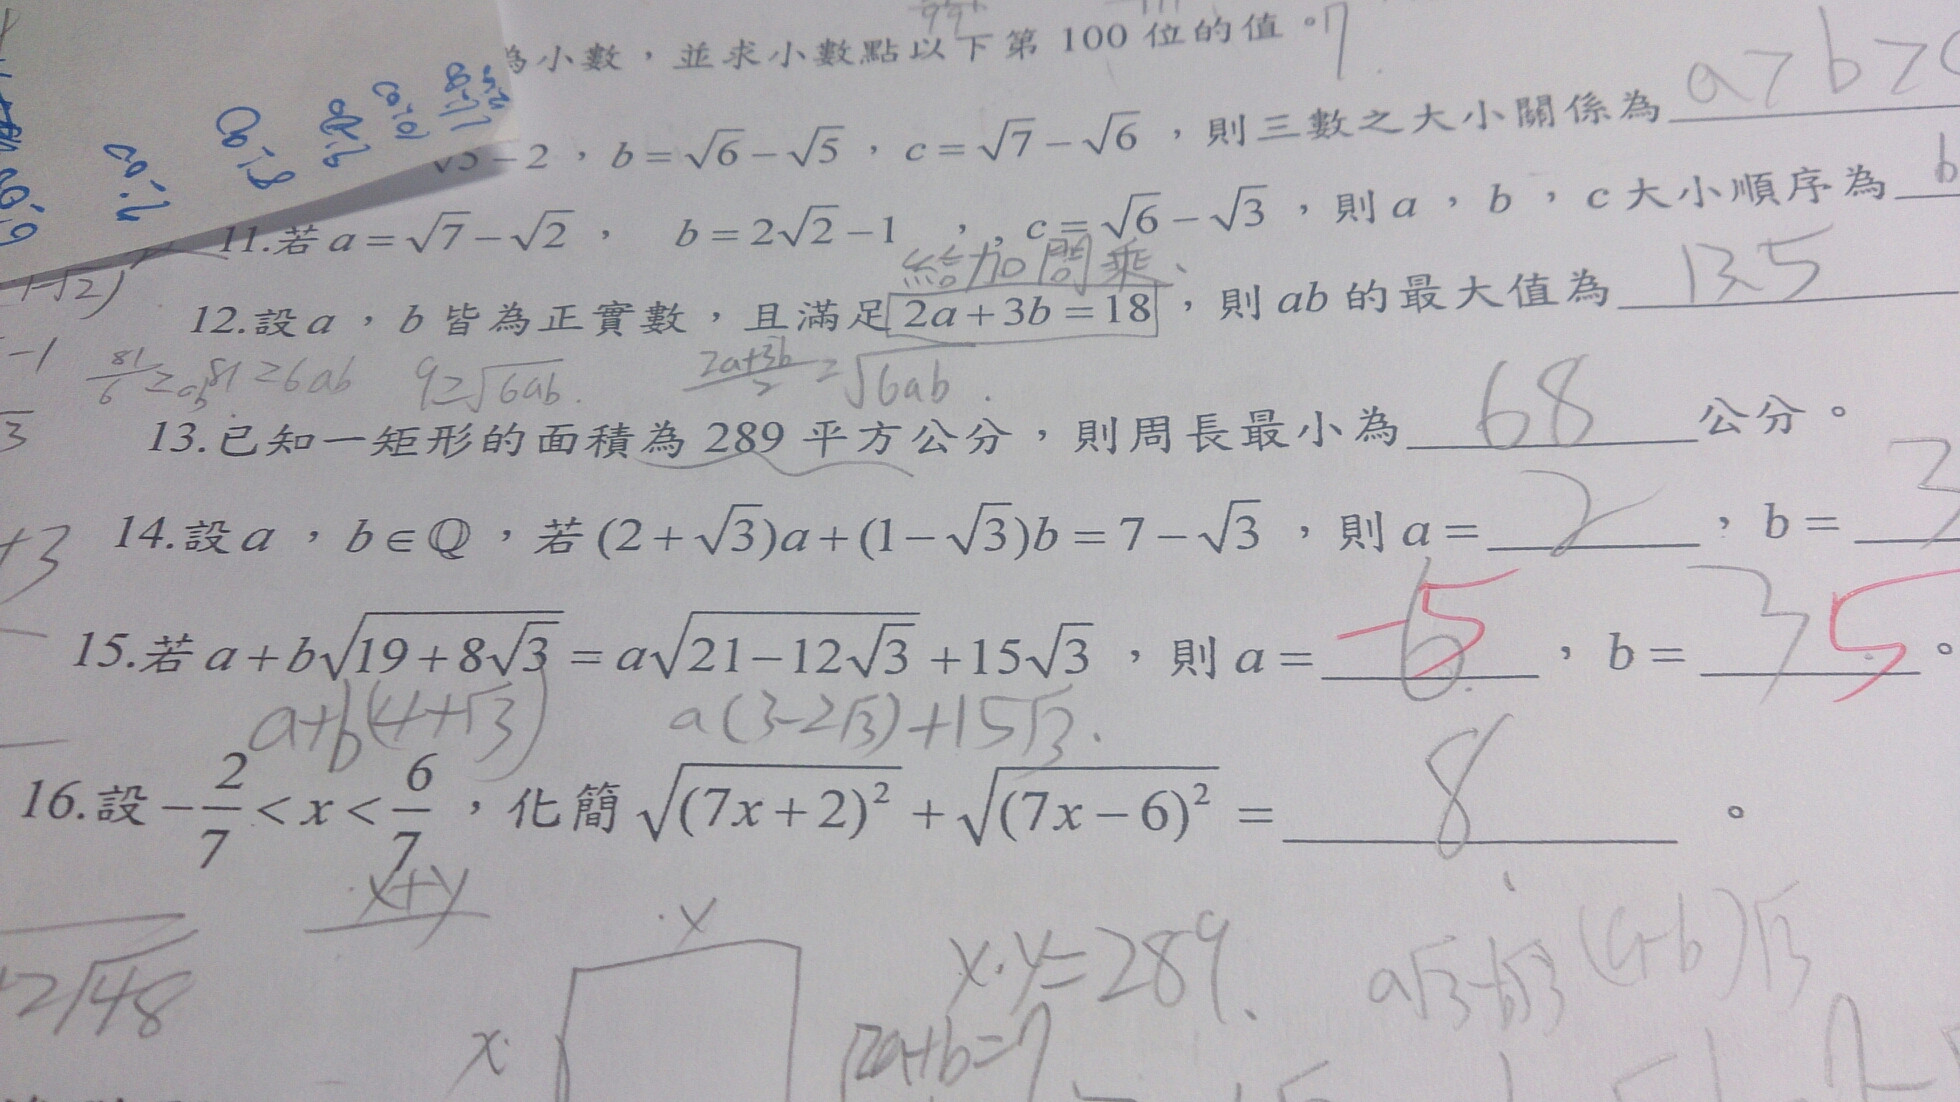 為小數，並求小數點以下第 100 位的值。7
√5-2，b=√6-√5，c=√7-√6，則三數之大小關係為 a>b>c
11.若a=√7-√2， b=2√2-1 ，，c=√6-√3，則a，b，c大小順序為 b
給加問乘、
12.設a，b皆為正實數，且滿足 2a+3b=18，則ab的最大值為 13.5
81/6≥ab 81≥6ab 9≥√6ab. (2a+3b)/2≥√6ab.
13.已知一矩形的面積為 289 平方公分，則周長最小為 68 公分。
14.設a，b∈ℚ，若(2+√3)a+(1-√3)b=7-√3，則a= 2，b= 3
15.若a+b√(19+8√3)=a√(21-12√3)+15√3，則a= 6 -5，b= 7 5。
a+b(4+√3) a(3-2√3)+15√3.
16.設-2/7<x<6/7，化簡√(7x+2)²+√(7x-6)²= 8 。
x+y
x
x·y=289.
a√3-b√3 (a-b)√3
2√48
x
2a+b=7